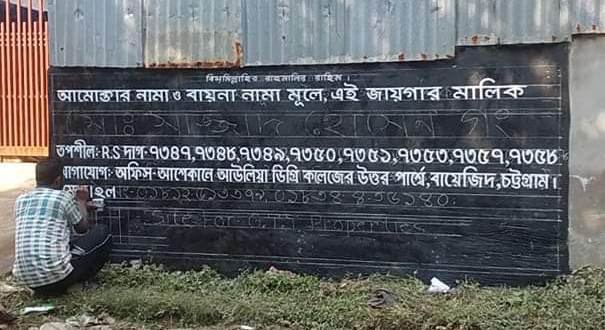 বিসমিল্লাহির রাহমানির রাহিম ।
আমোক্তার নামা ও বায়না নামা মূলে, এই জায়গার মালিক
মোঃ সাজ্জাদ হোসেন গং
তপশীল: R.S দাগ-৭৩৪৭,৭৩৪৮,৭৩৪৯,৭৩৫০,৭৩৫১,৭৩৫৩,৭৩৫৭,৭৩৫৮
যোগাযোগ: অফিস-আশেকানে আউলিয়া ডিগ্রি কলেজের উত্তর পার্শ্বে, বায়েজিদ, চট্টগ্রাম ।
Site For Properties